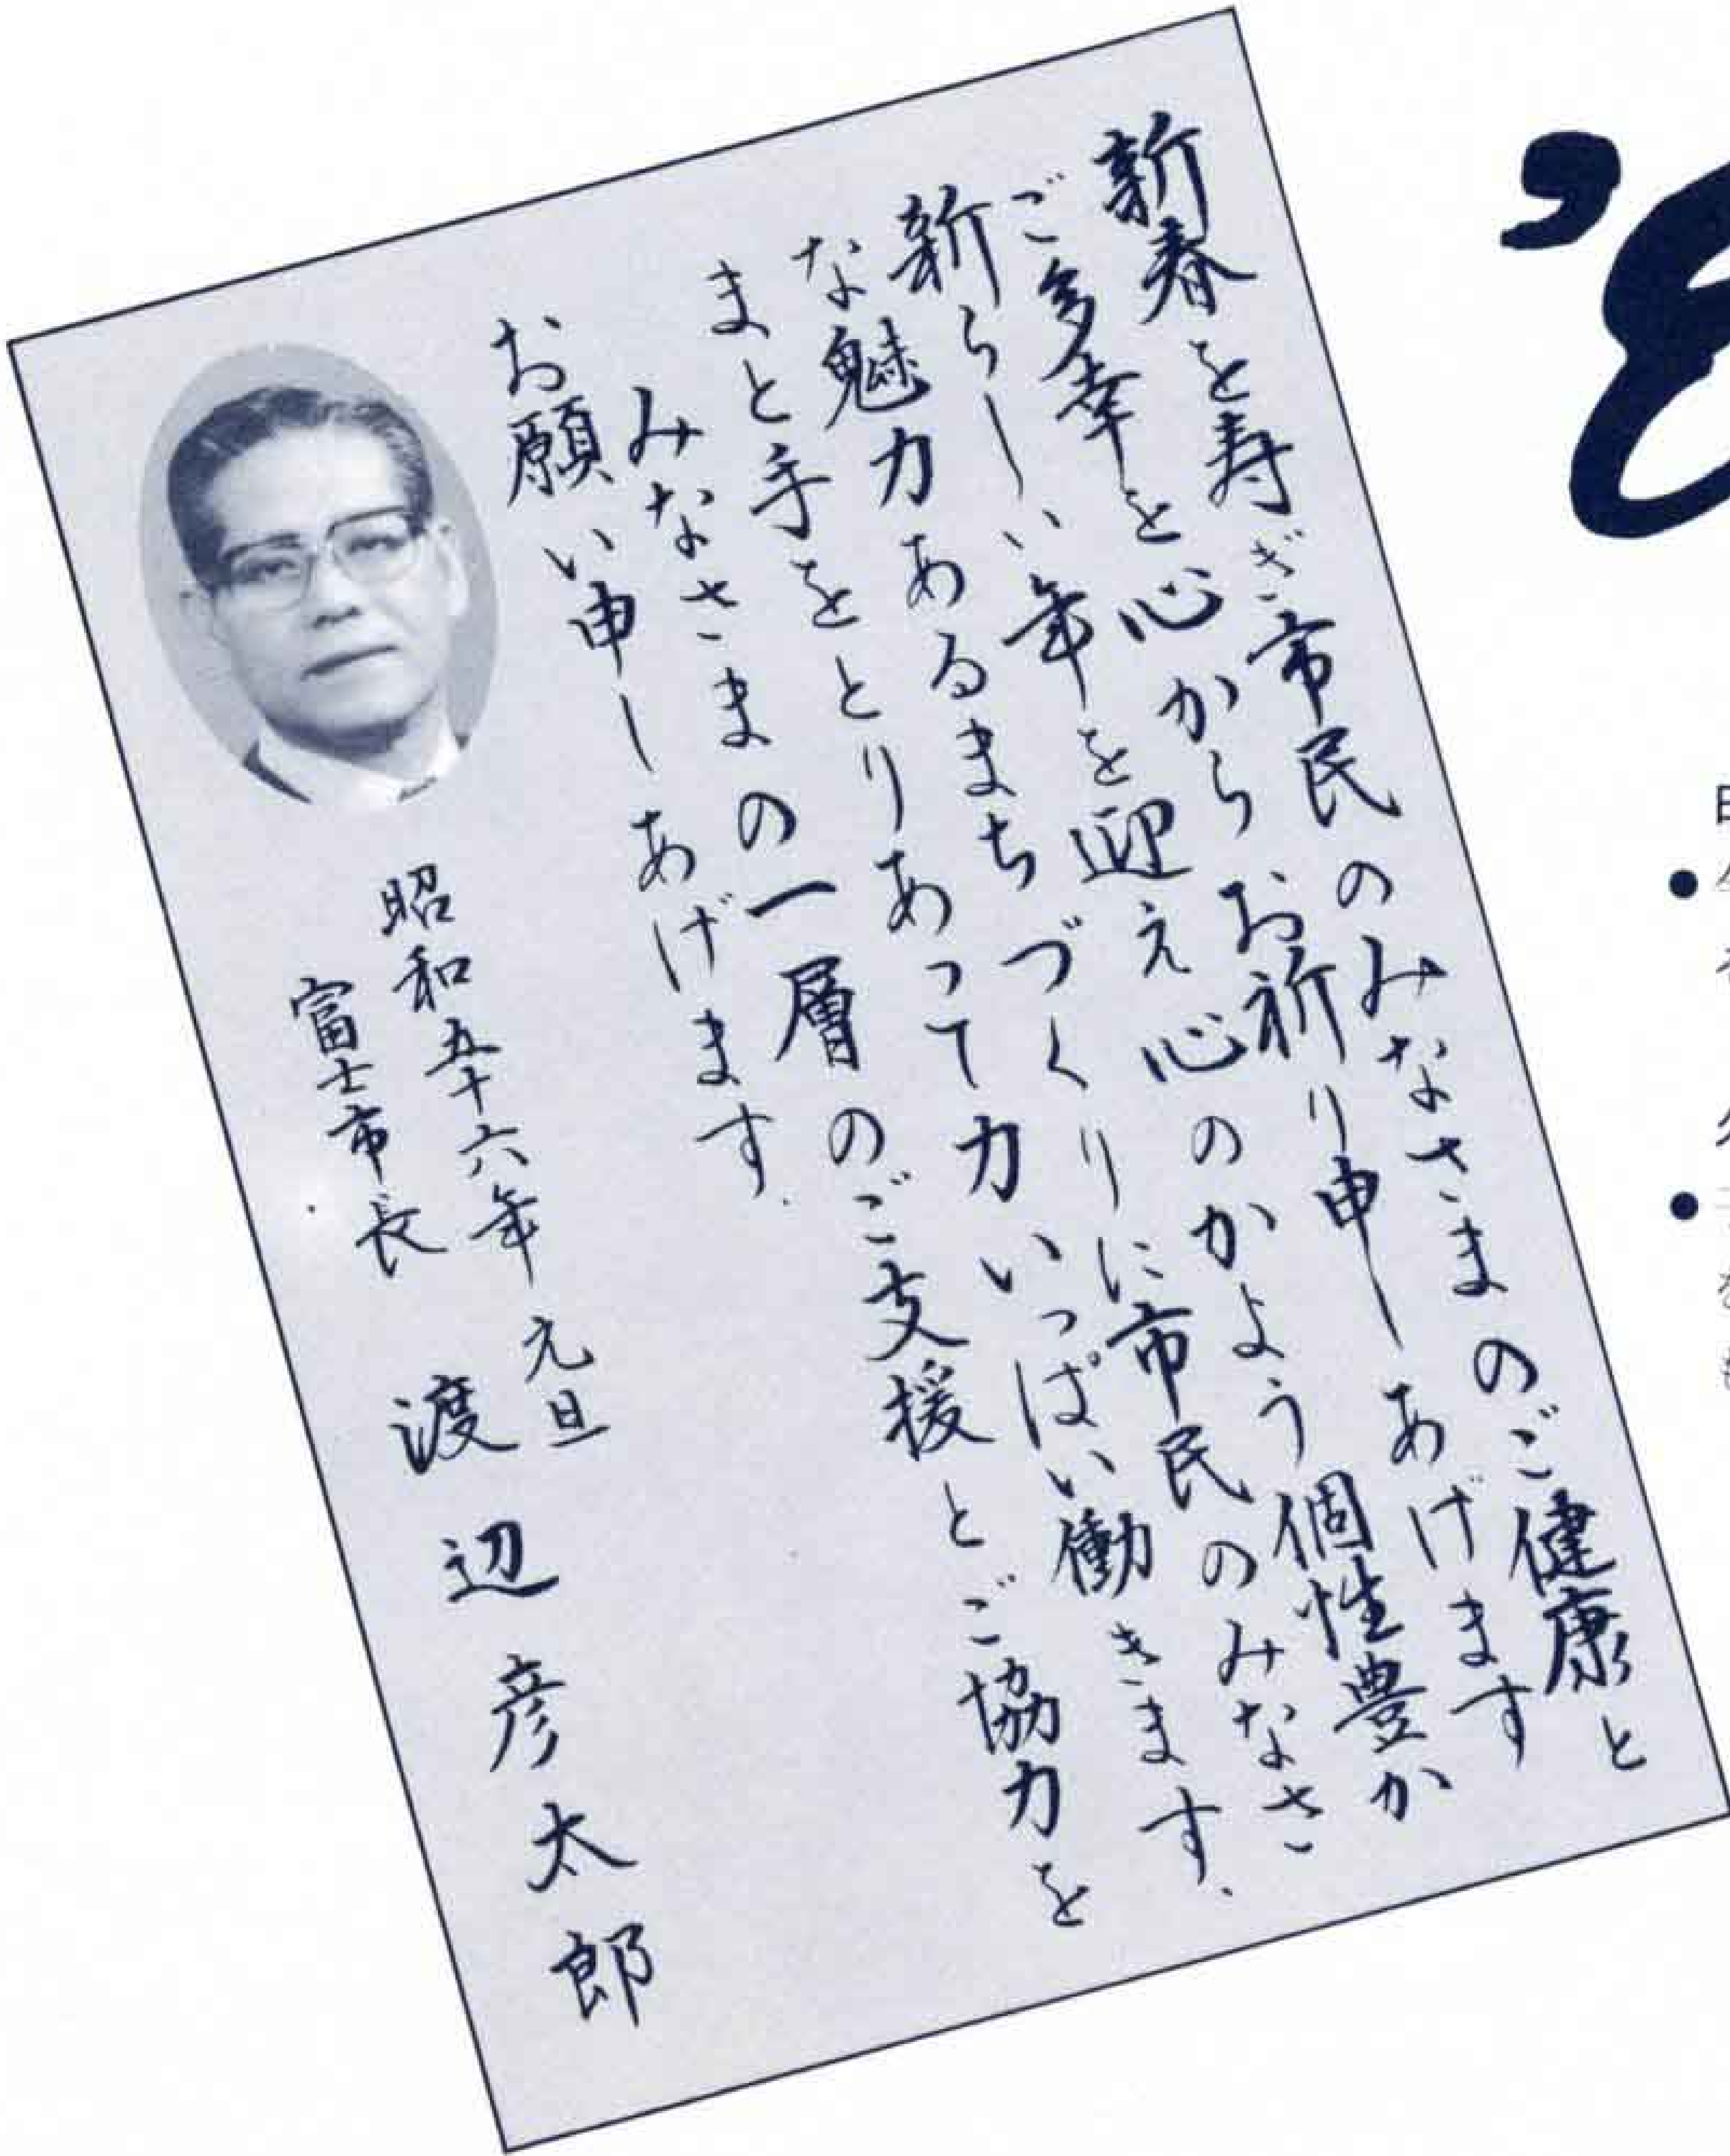 新春を寿ぎ市民のみなさまのご健康と
ご多幸を心からお祈り申しあげます
新らしい年を迎え心のかよう個性豊か
な魅力あるまちづくりに市民のみなさ
まと手をとりあって力いっぱい働きます.
みなさまの一層のご支援とご協力を
お願い申しあげます.
昭和五十六年元旦
富士市長 渡辺彦太郎